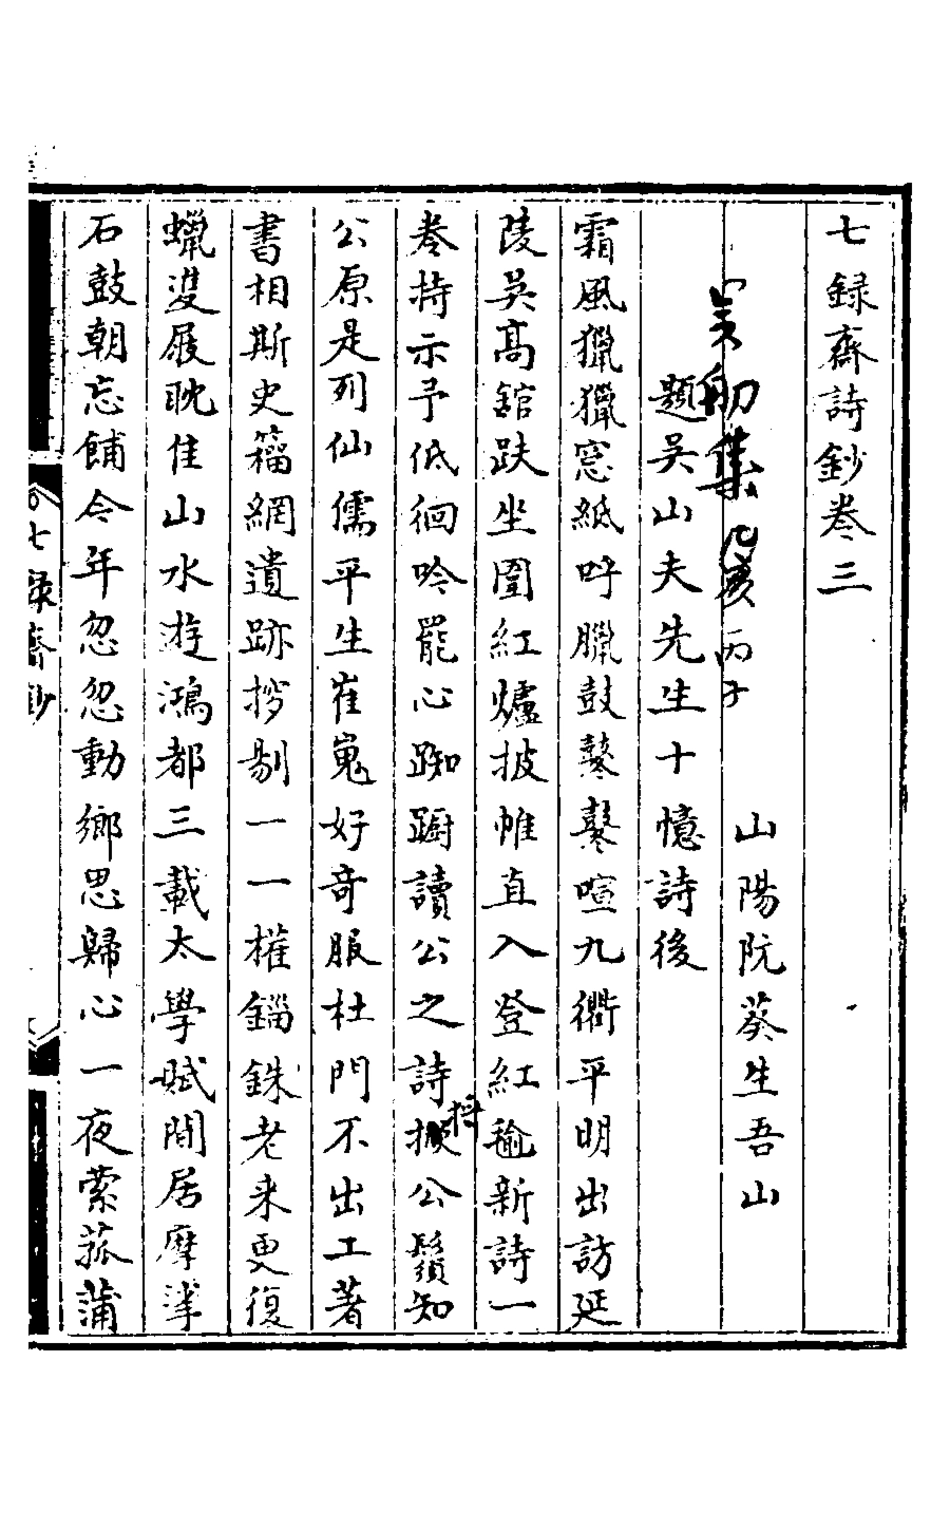 七録齋詩鈔卷三
山陽阮葵生吾山
集 乙亥 丙子
題吳山夫先生十憶詩後
霜風獵獵窓紙吁臘鼓鼕鼕喧九衢平明出訪延
陵吳髙舘趺坐圍紅爐披帷直入登紅毺新詩一
卷持示予低徊吟罷心踟躕讀公之詩捋公鬚知
公原是列仙儒平生崔嵬好奇服杜門不出工著
書相斯史籀網遺跡挱剔一一權錙銖老来更復
蠟䨇屐眈佳山水遊鴻都三載太學賦閒居摩挲
石鼓朝忘餔今年忽忽動鄉思歸心一夜縈菰蒲
七録齋鈔